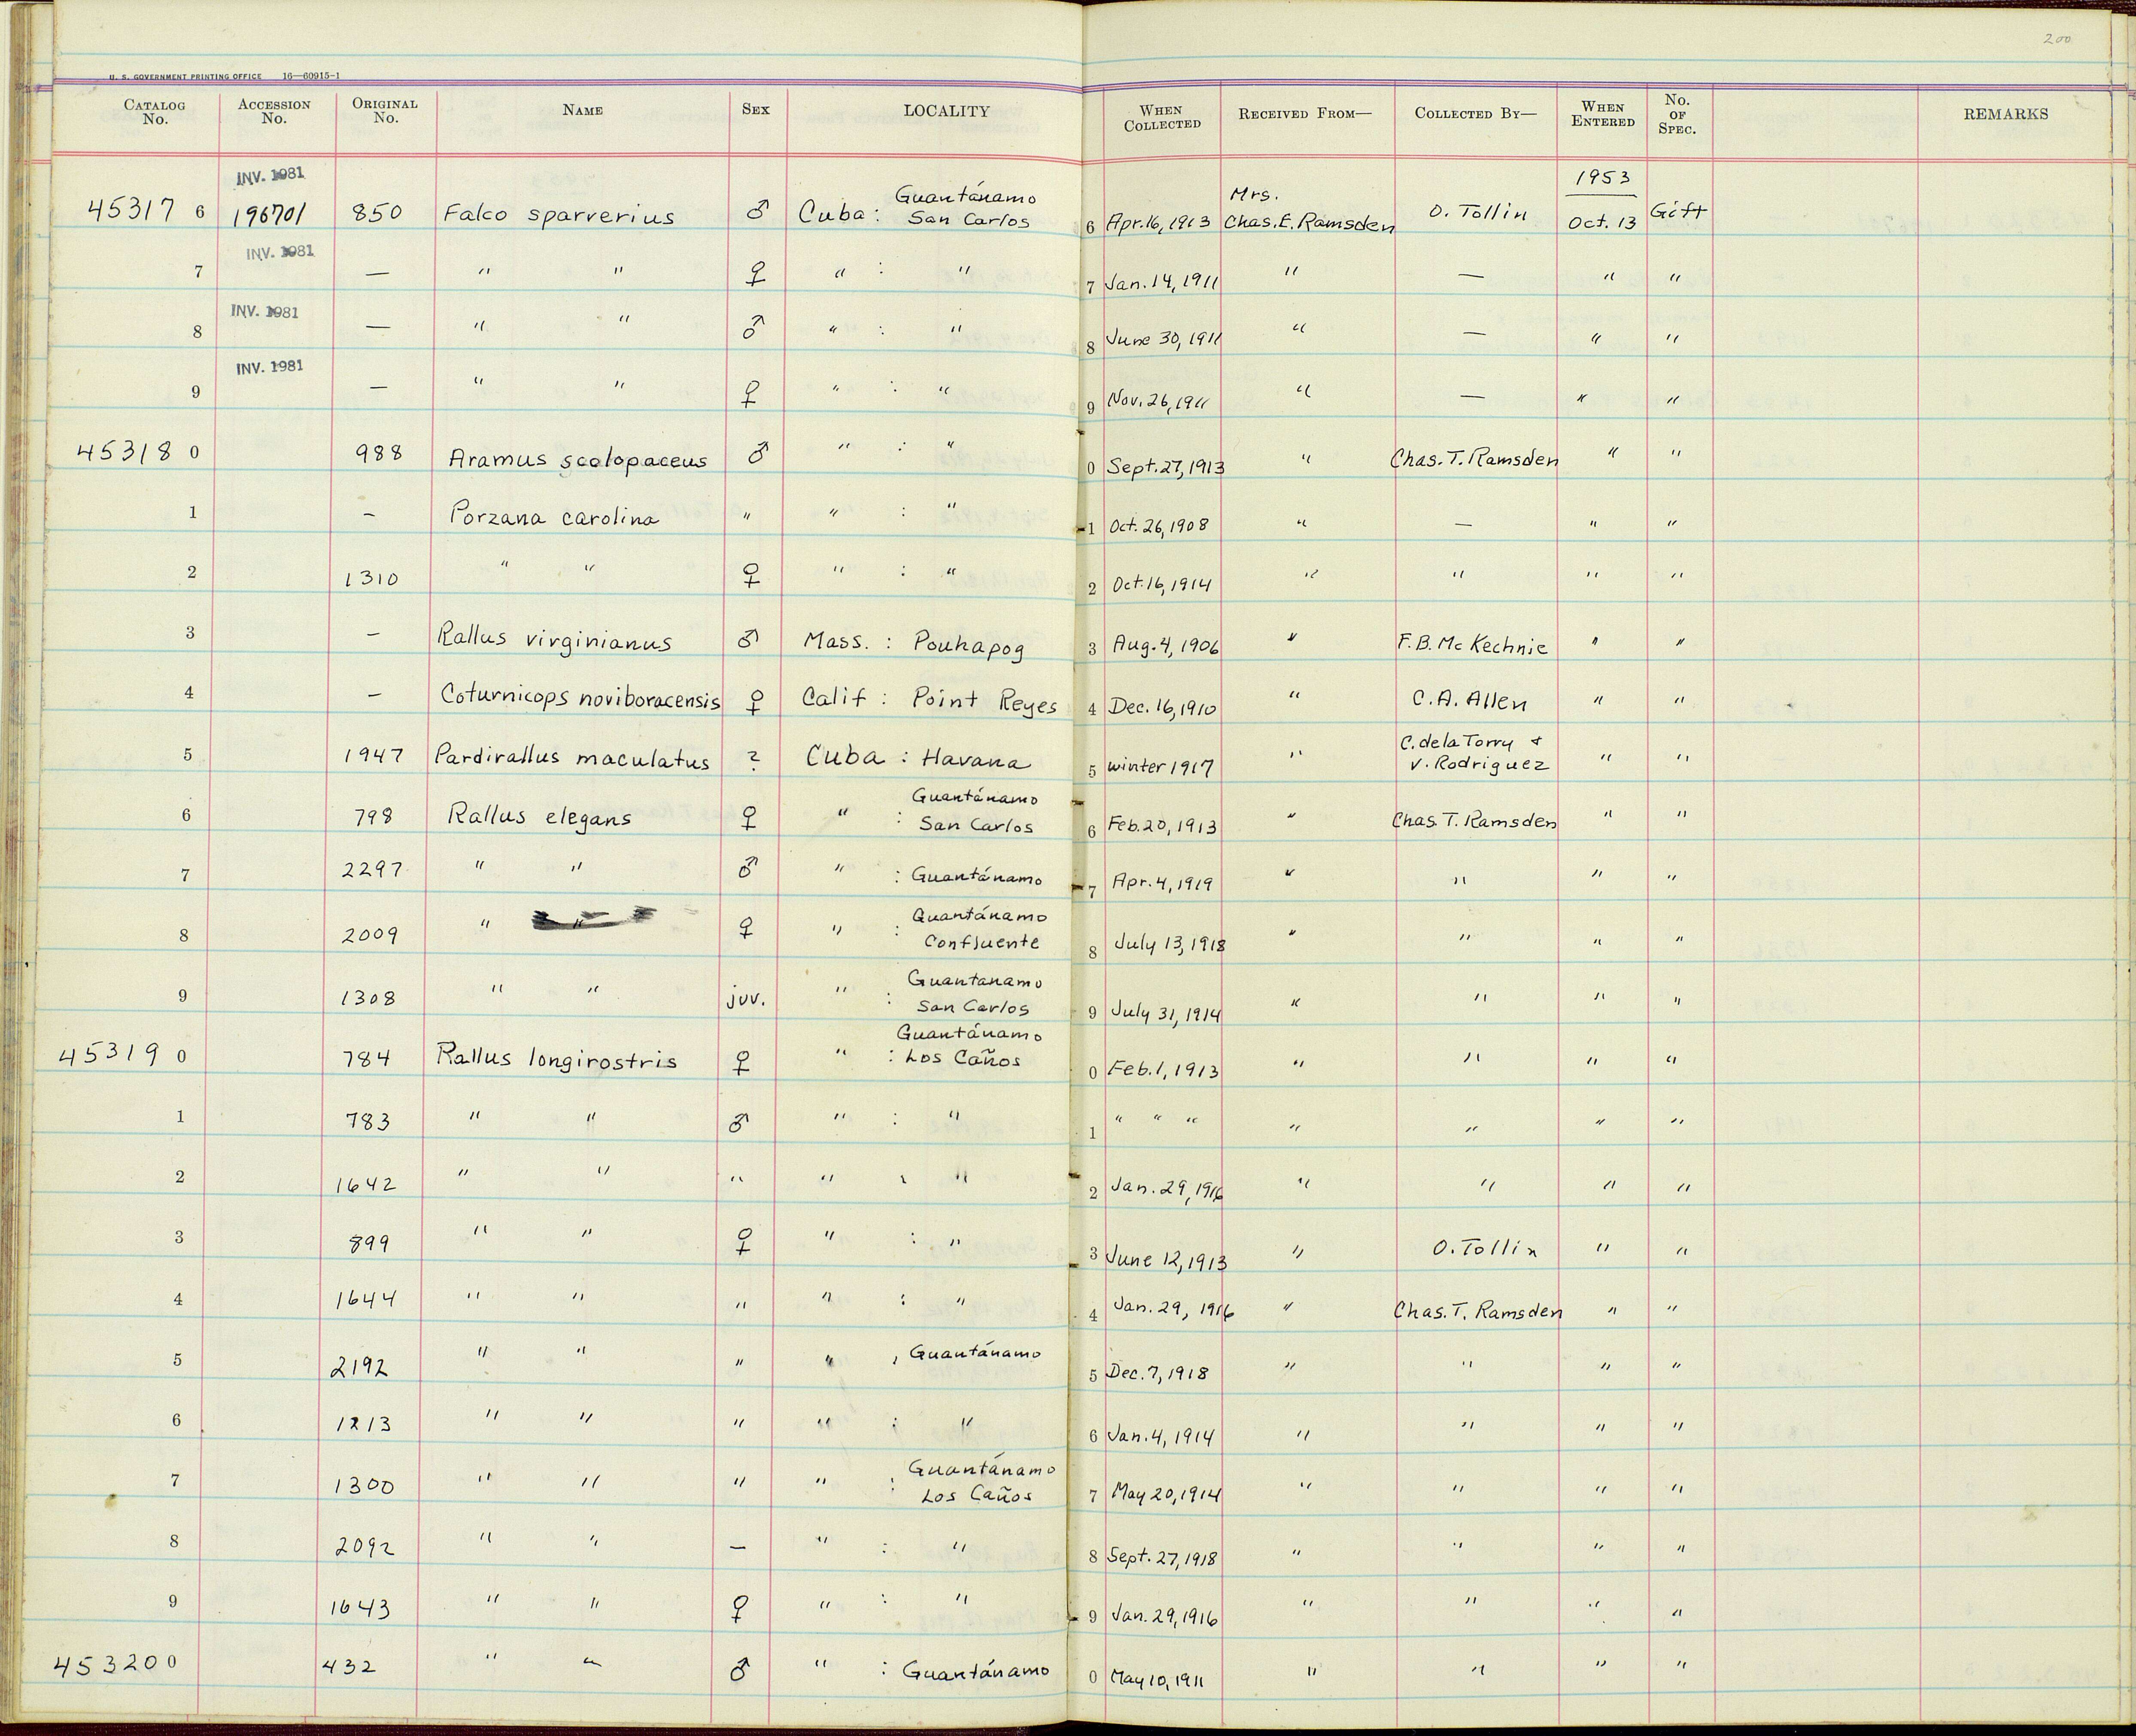 200
U. S. GOVERNMENT PRINTING OFFICE 16—60915-1
CATALOG No. ACCESSION No. ORIGINAL No. NAME SEX LOCALITY WHEN COLLECTED RECEIVED FROM— COLLECTED BY— WHEN ENTERED No. OF SPEC. REMARKS
INV. 1981 Guantánamo Mrs. 1953
45317 6 196701 850 Falco sparverius ♂ Cuba: San Carlos 6 Apr.16, 1913 Chas.E.Ramsden O. Tollin Oct. 13 Gift
INV. 1981
7 — " " ♀ " : " 7 Jan. 14, 1911 " — " "
INV. 1981
8 — " " ♂ " : " 8 June 30, 1911 " — " "
INV. 1981
9 — " " ♀ " : " 9 Nov. 26, 1911 " — " "
45318 0 988 Aramus scolopaceus ♂ " : " 0 Sept.27, 1913 " Chas. T. Ramsden " "
1 – Porzana carolina " " : " 1 Oct. 26, 1908 " — " "
2 1310 " " ♀ " : " 2 Oct.16, 1914 " " " "
3 – Rallus virginianus ♂ Mass. : Pouhapog 3 Aug. 4, 1906 " F.B. McKechnie " "
4 – Coturnicops noviboracensis ♀ Calif : Point Reyes 4 Dec. 16, 1910 " C. A. Allen " "
5 1947 Pardirallus maculatus ? Cuba : Havana 5 winter 1917 " C. de la Torry & V. Rodriguez " "
Guantánamo
6 798 Rallus elegans ♀ " : San Carlos 6 Feb. 20, 1913 " Chas. T. Ramsden " "
7 2297 " " ♂ " : Guantánamo 7 Apr. 4, 1919 " " " "
Guantánamo
8 2009 " " ♀ " : Confluente 8 July 13, 1918 " " " "
Guantanamo
9 1308 " " juv. " : San Carlos 9 July 31, 1914 " " " "
Guantánamo
45319 0 784 Rallus longirostris ♀ " : Los Caños 0 Feb. 1, 1913 " " " "
1 783 " " ♂ " : " 1 " " " " " " "
2 1642 " " " " : " 2 Jan. 29, 1916 " " " "
3 899 " " ♀ " : " 3 June 12, 1913 " O. Tollin " "
4 1644 " " " " : " 4 Jan. 29, 1916 " Chas. T. Ramsden " "
5 2192 " " " " , Guantánamo 5 Dec. 7, 1918 " " " "
6 1213 " " " " : " 6 Jan. 4, 1914 " " " "
Guantánamo
7 1300 " " " " : Los Caños 7 May 20, 1914 " " " "
8 2092 " " — " : " 8 Sept. 27, 1918 " " " "
9 1643 " " ♀ " : " 9 Jan. 29, 1916 " " " "
45320 0 432 " " ♂ " : Guantánamo 0 May 10, 1911 " " " "